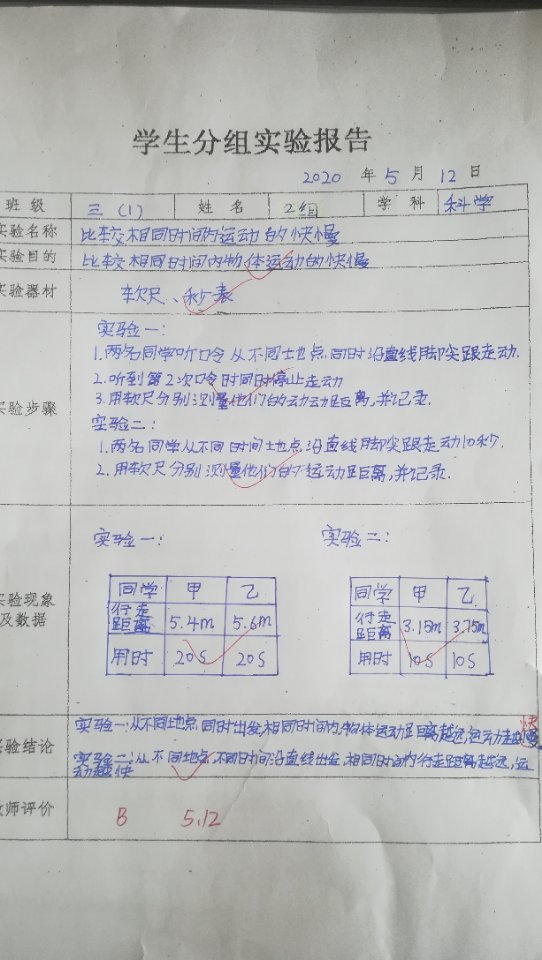 学生分组实验报告
2020 年 5 月 12 日
班级 三（1） 姓名 2组 学科 科学
实验名称 比较相同时间内运动的快慢
实验目的 比较相同时间内物体运动的快慢
实验器材 软尺、秒表
实验步骤
实验一：
1.两名同学听口令从不同地点,同时沿直线脚尖跟走动.
2.听到第2次口令时同时停止走动
3.用软尺分别测量他们的动动距离,并记录.
实验二：
1.两名同学从不同时间地点沿直线脚尖跟走动10秒.
2.用软尺分别测量他们的运动距离,并记录.
实验现象及数据
实验一： 实验二：
同学 甲 乙
行走距离 5.4m 5.6m
用时 20S 20S
同学 甲 乙
行走距离 3.15m 3.75m
用时 10S 10S
实验结论
实验一:从不同地点,同时出发,相同时间内,物体运动距离越远,运动越 快
实验二:从不同地点,不同时间沿直线出发,相同时间内行走距离越远,运
动越快
教师评价 B 5.12